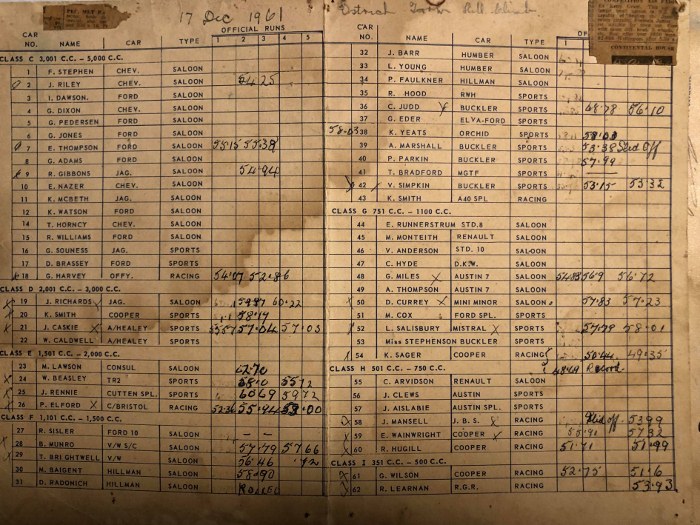 17 Dec 1961
CAR NO. NAME CAR TYPE OFFICIAL RUNS 1 2 3 4 5
CLASS C 3,001 C.C. – 5,000 C.C.
1 F. STEPHEN CHEV. SALOON
2 J. RILEY CHEV. SALOON 54.25
3 I. DAWSON. FORD SALOON
4 G. DIXON CHEV. SALOON
5 G. PEDERSEN FORD SALOON
6 G. JONES FORD SALOON
7 E. THOMPSON FORD SALOON 55.15 55.38
8 G. ADAMS FORD SALOON
9 R. GIBBONS JAG. SALOON 54.94
10 E. NAZER CHEV. SALOON
11 K. McBETH JAG. SALOON
12 K. WATSON FORD SALOON
14 T. HORNCY CHEV. SALOON
15 R. WILLIAMS FORD SALOON
16 G. SOUNESS JAG. SPORTS
17 D. BRASSEY FORD SPORTS
18 G. HARVEY OFFY. RACING 54.07 52.86
CLASS D 2,001 C.C. – 3,000 C.C.
19 J. RICHARDS X JAG. SALOON 60.22
20 K. SMITH COOPER SPORTS 58.19
21 J. CASKIE X A/HEALEY SPORTS 57.04 57.03
22 W. CALDWELL A/HEALEY SPORTS
CLASS E 1,501 C.C. – 2,000 C.C.
23 M. LAWSON CONSUL SALOON 62.70
24 W. BEASLEY TR2 SPORTS 58.0 55.12
25 J. RENNIE CUTTEN SPL. SPORTS 60.69 59.72
26 P. ELFORD X C/BRISTOL RACING 52.36 55.94 53.00
CLASS F 1,101 C.C. – 1,500 C.C.
27 R. SISLER FORD 10 SALOON
28 B. MUNRO V/W S/C SALOON 57.79 57.66
29 T. BRIGHTWELL V/W SALOON 56.46
30 M. BAIGENT HILLMAN SALOON 58.90
31 D. RADONICH HILLMAN SALOON ROLLED
CAR NO. NAME CAR TYPE
32 J. BARR HUMBER SALOON
33 L. YOUNG HUMBER SALOON
34 P. FAULKNER HILLMAN SALOON
35 R. HOOD RWH SPORTS
36 C. JUDD BUCKLER SPORTS 68.78 56.10
37 G. EDER ELVA-FORD SPORTS
58.03 38 K. YEATS ORCHID SPORTS 58.03
39 A. MARSHALL BUCKLER SPORTS 55.38 Slid Off
40 P. PARKIN BUCKLER SPORTS 57.99
41 T. BRADFORD MGTF SPORTS
42 V. SIMPKIN BUCKLER SPORTS 53.15 53.32
43 K. SMITH A40 SPL RACING
CLASS G 751 C.C. – 1100 C.C.
44 E. RUNNERSTRUM STD.8 SALOON
45 M. MONTEITH RENAULT SALOON
46 V. ANDERSON STD. 10 SALOON
47 C. HYDE D.K.W. SALOON
48 G. MILES X AUSTIN 7 SALOON 56.9 56.72
49 A. THOMPSON AUSTIN 7 SALOON
50 D. CURREY X MINI MINOR SALOON 57.83 57.23
51 M. COX FORD SPL. SPORTS
52 L. SALISBURY MISTRAL X SPORTS 57.78 58.01
53 Miss STEPHENSON BUCKLER SPORTS
54 K. SAGER COOPER RACING 50.44 49.35
CLASS H 501 C.C. – 750 C.C. 48.49 Record
55 C. ARVIDSON RENAULT SALOON
56 J. CLEWS AUSTIN SPORTS
57 J. AISLABIE AUSTIN SPL. SPORTS
58 J. MANSELL J.B.S. X RACING Slid off 53.99
59 E. WAINWRIGHT COOPER X RACING 55.91 57.32
60 R. HUGILL COOPER RACING 51.71 51.99
CLASS I 351 C.C. – 500 C.C.
61 G. WILSON COOPER RACING 52.75 51.6
62 R. LEARNAN R.G.R. RACING 53.93